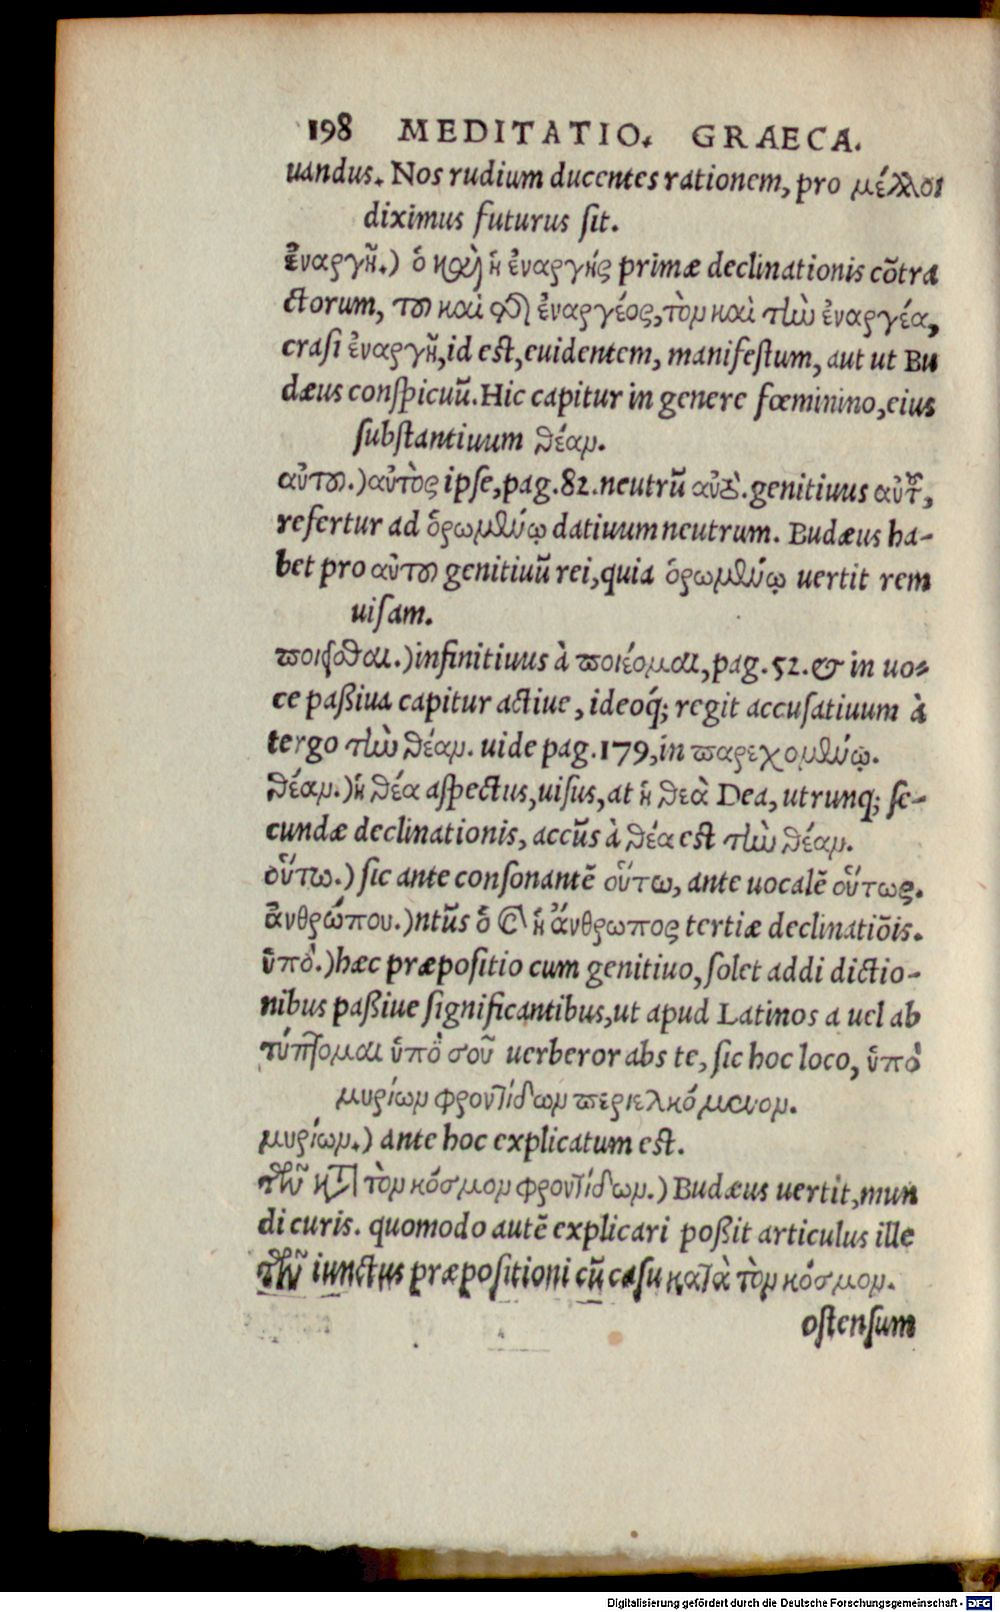 198 MEDITATIO. GRAECA.
uandus. Nos rudium ducentes rationem, pro μέλλοι
diximus futurus sit.
ἐναργῆ.) ὁ καὶ ἡ ἐναργής primæ declinationis cõtra
ctorum, τοῦ καὶ τῆς ἐναργέος, τὸν καὶ τὴν ἐναργέα,
crasi ἐναργῆ, id est, euidentem, manifestum, aut ut Bu
dæus conspicuũ. Hic capitur in genere fœminino, eius
substantiuum θέαν.
αὐτοῦ.) αὐτὸς ipse, pag. 82. neutrũ αὐτὸ. genitiuus αὐτοῦ,
refertur ad ὁρωμένῳ datiuum neutrum. Budæus ha-
bet pro αὐτοῦ genitiuũ rei, quia ὁρωμένῳ uertit rem
uisam.
ποιεῖσθαι.) infinitiuus à ποιέομαι, pag. 52. & in uo-
ce paßiua capitur actiue, ideoq́; regit accusatiuum à
tergo τὴν θέαν. uide pag. 179, in παρεχομένῳ.
θέαν.) ἡ θέα aspectus, uisus, at ἡ θεὰ Dea, utrunq; se-
cundæ declinationis, accũs à θέα est τὴν θέαν.
οὕτω.) sic ante consonantẽ οὕτω, ante uocalẽ οὕτως.
ἀνθρώπου.) ntũs ὁ καὶ ἡ ἄνθρωπος tertiæ declinatiõis.
ὑπὸ.) hæc præpositio cum genitiuo, solet addi dictio-
nibus paßiue significantibus, ut apud Latinos a uel ab
τύπτομαι ὑπὸ σοῦ uerberor abs te, sic hoc loco, ὑπὸ
μυρίων φροντίδων περιελκόμενον.
μυρίων.) ante hoc explicatum est.
τῶν κατὰ τὸν κόσμον φροντίδων.) Budæus uertit, mun
di curis. quomodo autẽ explicari poßit articulus ille
τῶν iunctus præpositioni cũ casu κατὰ τὸν κόσμον.
ostensum
Digitalisierung gefördert durch die Deutsche Forschungsgemeinschaft - DFG